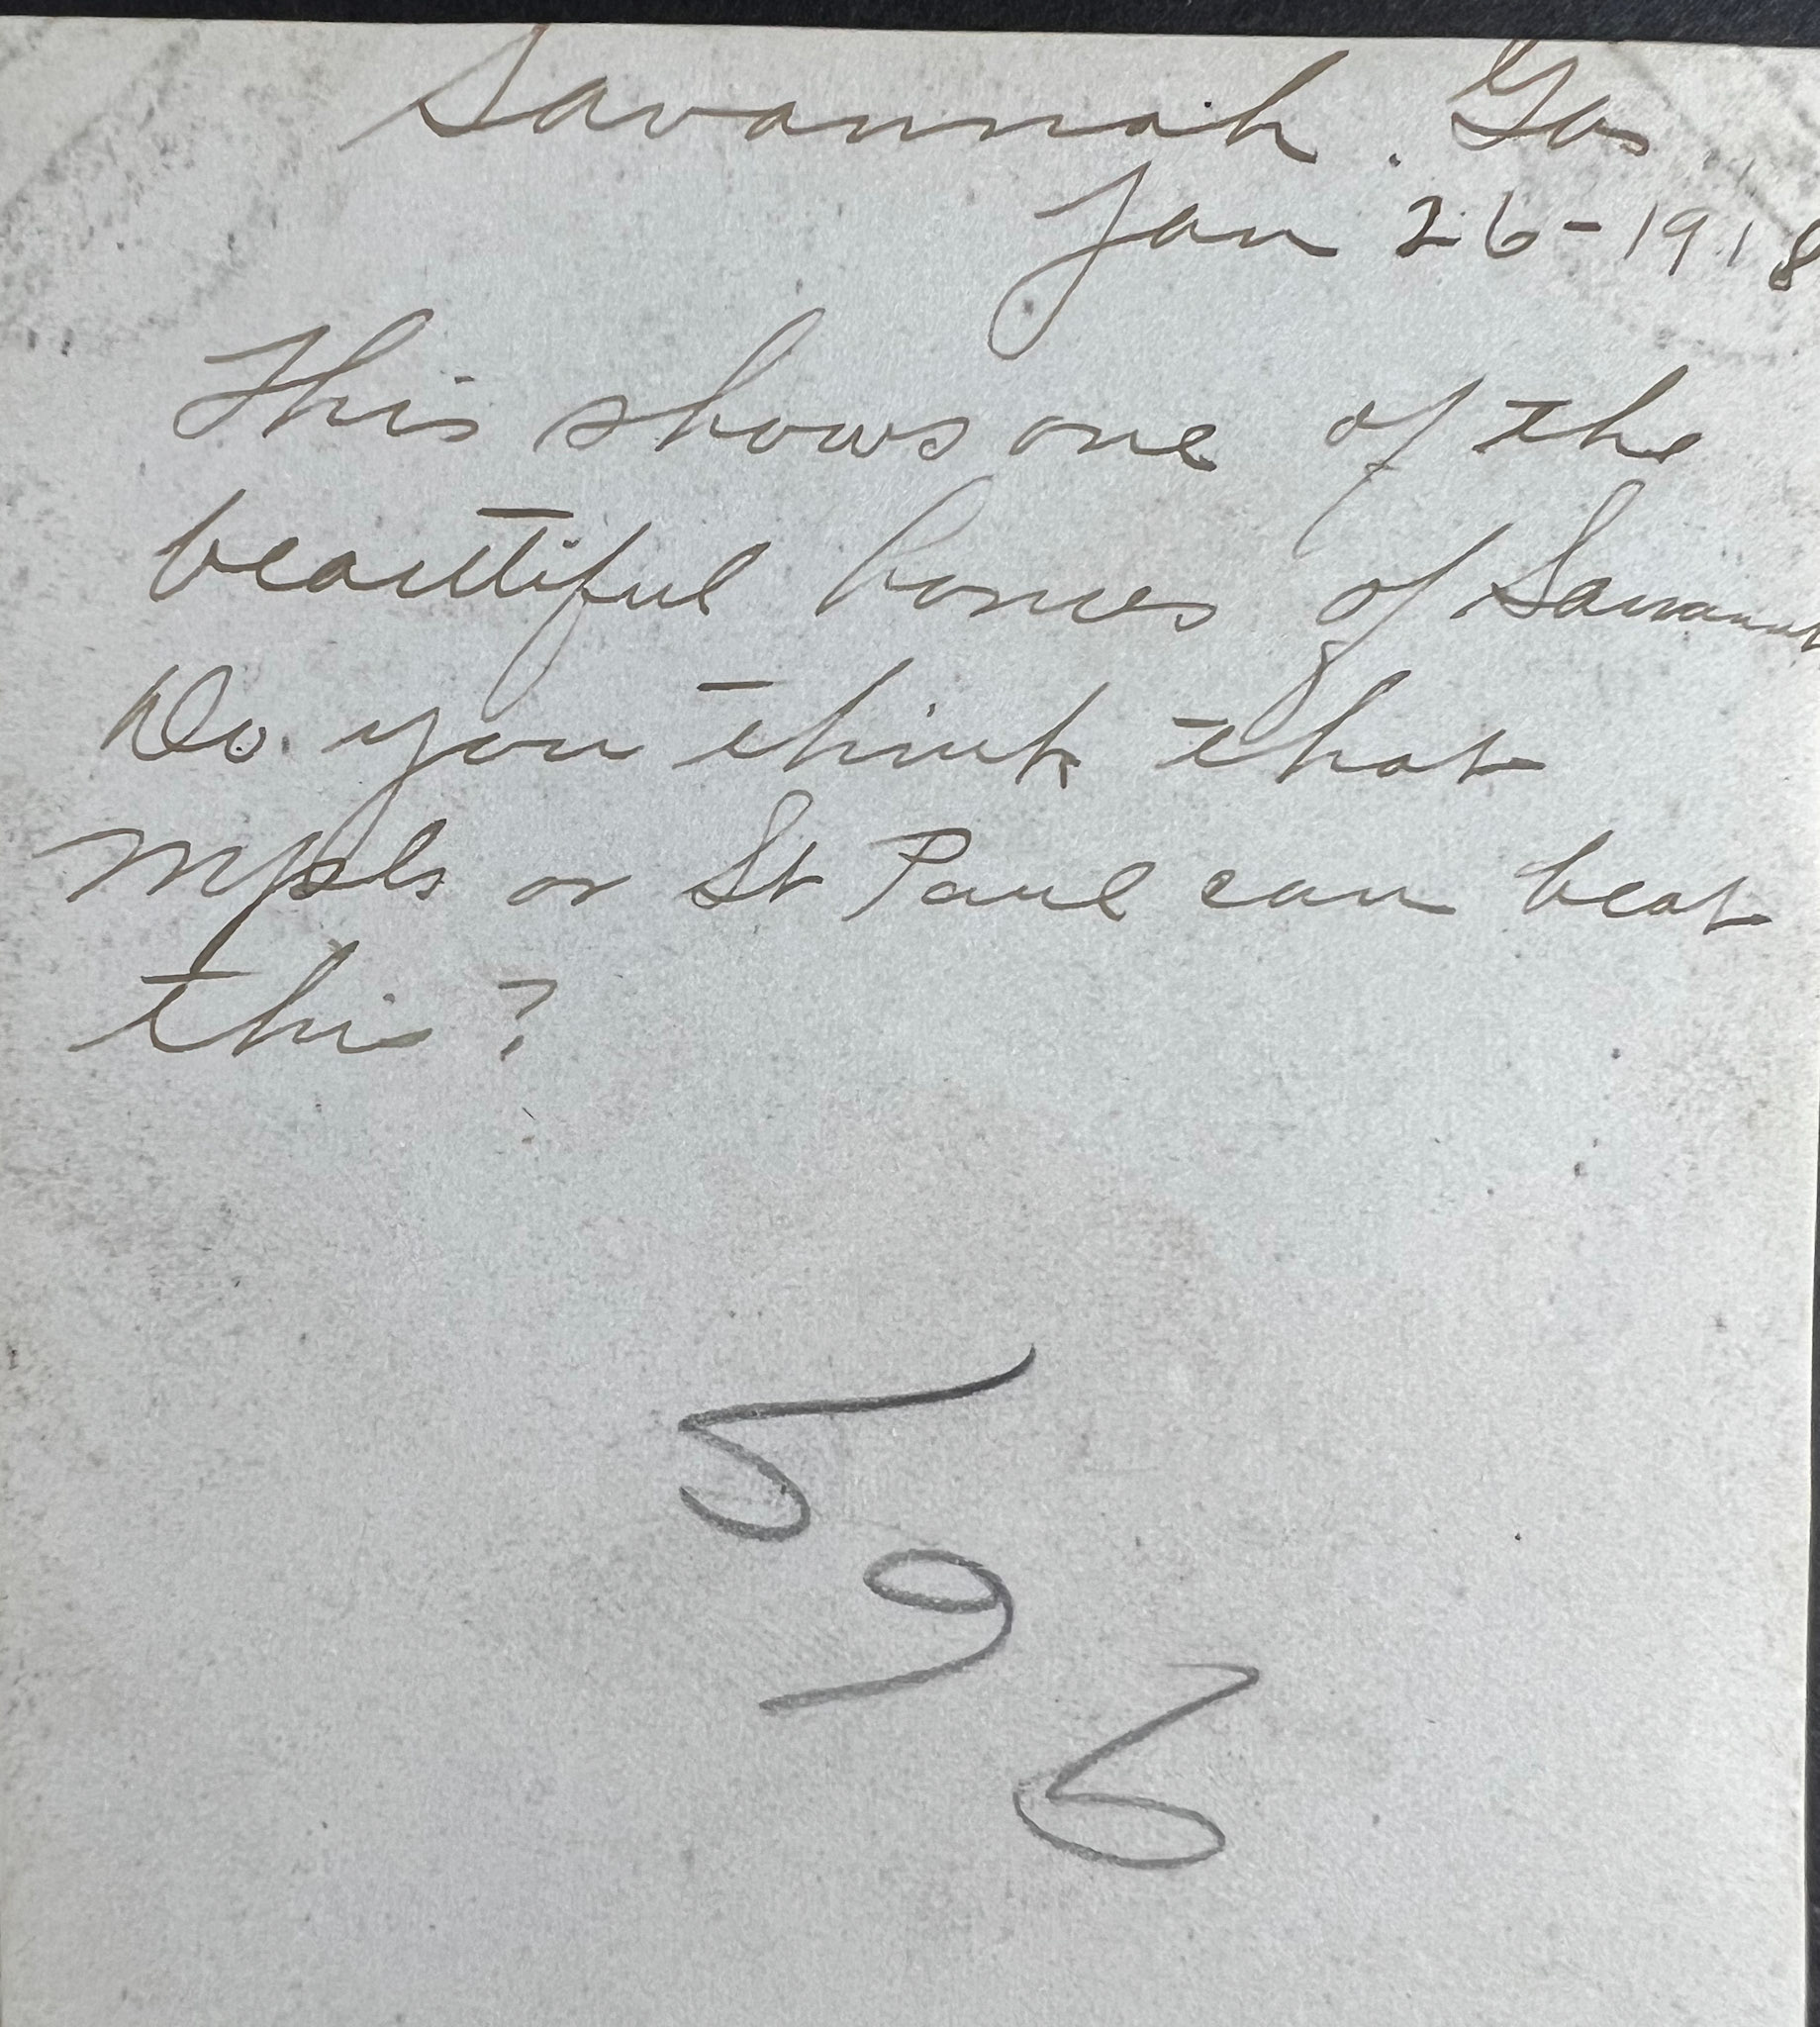 Savannah. Ga
Jan 26-1918
This shows one of the
beautiful homes of Savannah
Do you think that
Mpls or St Paul can beat
this?
5
9
6